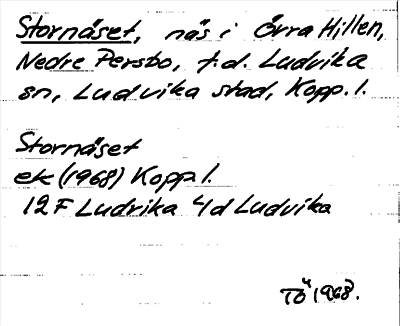 Stornäset, näs i övra Hillen,
Nedre Persbo, f.d. Ludvika
sn, Ludvika stad, Kopp. l.
Stornäset
ek (1968) Kopp l.
12 F Ludvika 4 d Ludvika
TÖ 1968.